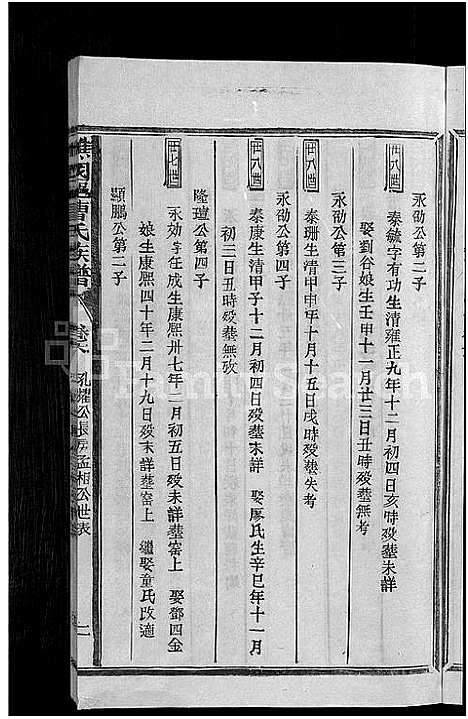 永劭公第二子
廿八世
泰毓字有功生清雍正九年十二月初四日亥時殁塟未詳
娶劉谷娘生壬甲十一月廿三日丑時殁塟無考
永劭公第三子
廿八世
泰珊生清甲申年十月十五日戌時殁塟失考
永劭公第四子
廿八世
泰康生清甲子十二月初四日殁塟未詳 娶廖氏生辛巳年十一月
初三日丑時殁塟無攷
隆瑄公第四子
廿七世
永効字任成生康熙卅七年二月初五日殁未詳塟窑上 娶鄧四金
娘生康熙四十年二月十九日殁未詳塟窑上 繼娶童氏改適
顯鵬公第二子
譙國郡曹氏族譜 卷六 孔耀公長房孟相公世表 二
FamilySearch